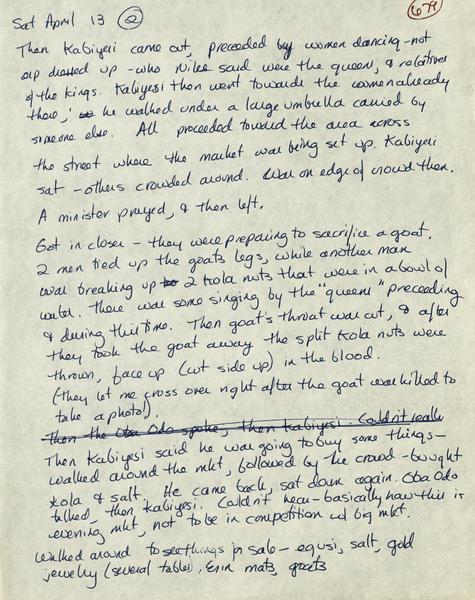 Sat April 13 ②
679
Then Kabiyesi came out, preceded by women dancing - not
all dressed up - who Nike said were the queen, & relatives
of the kings. Kabiyesi then went towards the women already
there, he walked under a large umbrella carried by
someone else. All proceeded toward the area across
the street where the market was being set up. Kabiyesi
sat - others crowded around. Was on edge of crowd then.
A minister prayed, & then left.
Got in closer - they were preparing to sacrifice a goat.
2 men tied up the goats legs, while another man
was breaking up 2 kola nuts that were in a bowl of
water. There was some singing by the "queens" preceeding
& during this time. Then goat's throat was cut, & after
they took the goat away the split kola nuts were
thrown, face up (cut side up) in the blood.
(they let me cross over right after the goat was killed to
take a photo!).
Then the Oba Odo spoke, then Kabiyesi. Couldn't really
Then Kabiyesi said he was going to buy some things -
walked around the mkt, followed by the crowd - bought
kola & salt. He came back, sat down again. Oba Odo
talked, then Kabiyesi. Couldn't hear - basically how this is
evening mkt, not to be in competition w/ big mkt.
Walked around to see things for sale - egusi, salt, gold
jewelry (several tables), Erin mats, goats